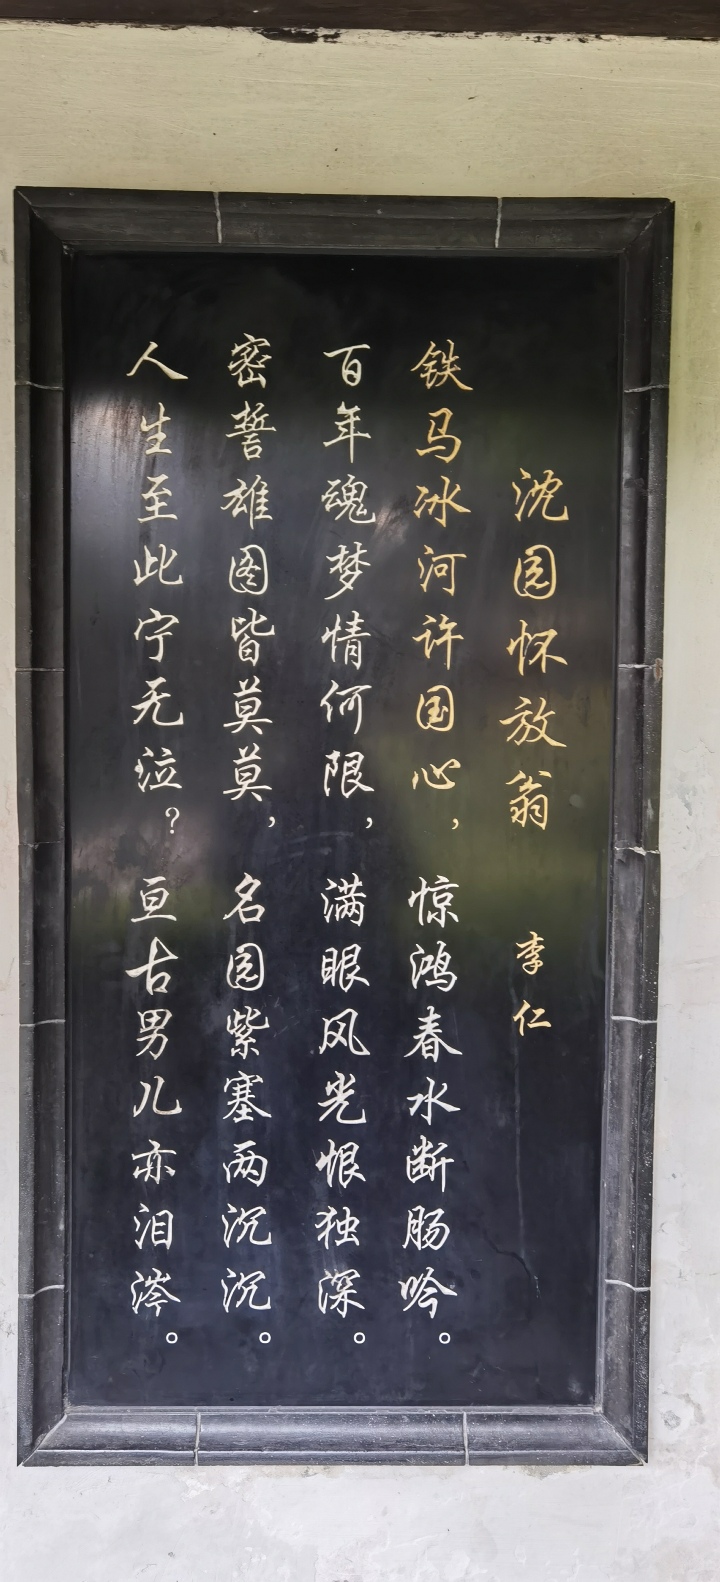 沈园怀放翁
李仁
铁马冰河许国心，惊鸿春水断肠吟。
百年魂梦情何限，满眼风光恨独深。
密誓雄图皆莫莫，名园紫塞两沉沉。
人生至此宁无泣？亘古男儿亦泪涔。